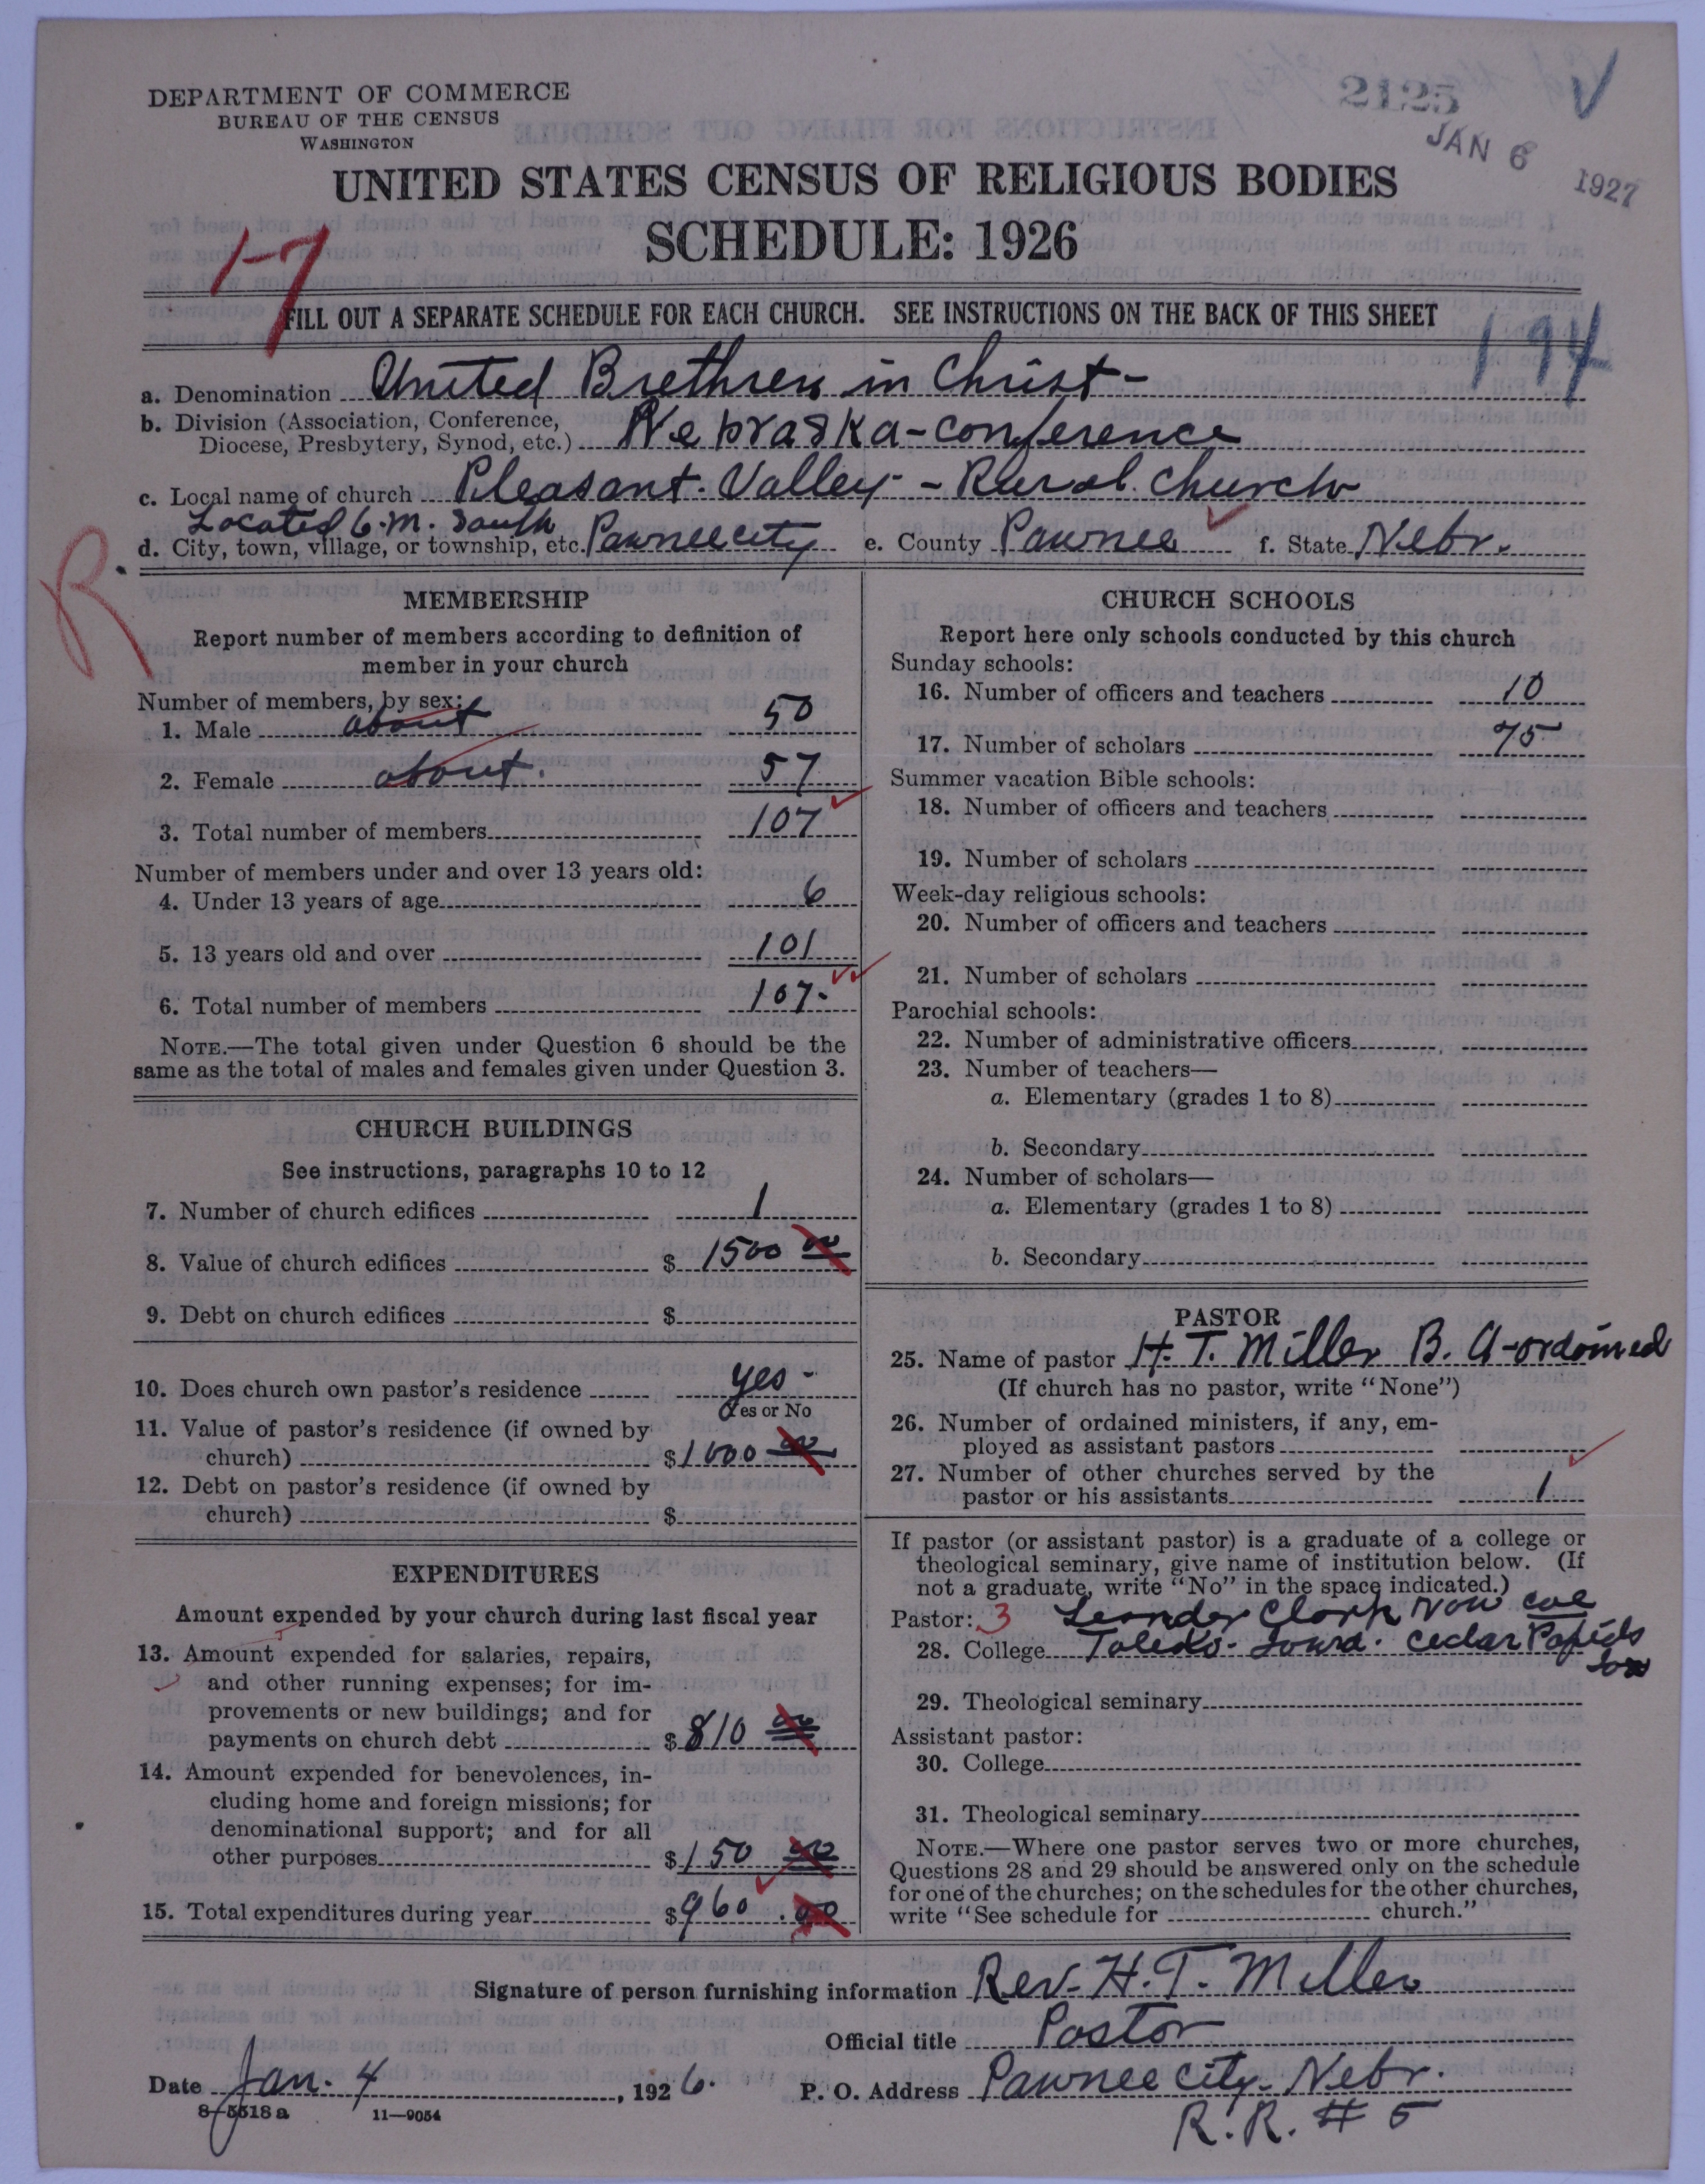 DEPARTMENT OF COMMERCE
BUREAU OF THE CENSUS
WASHINGTON
2125
JAN 6 1927
UNITED STATES CENSUS OF RELIGIOUS BODIES
SCHEDULE: 1926
1-7
FILL OUT A SEPARATE SCHEDULE FOR EACH CHURCH. SEE INSTRUCTIONS ON THE BACK OF THIS SHEET
194
a. Denomination United Brethren in Christ-
b. Division (Association, Conference,
Diocese, Presbytery, Synod, etc.) Nebraska-conference
c. Local name of church Pleasant. Valley - Rural church
Located 6. m. south
d. City, town, village, or township, etc. Pawnee city e. County Pawnee f. State Nebr.
R
MEMBERSHIP
Report number of members according to definition of
member in your church
Number of members, by sex:
1. Male about 50
2. Female about. 57
3. Total number of members 107
Number of members under and over 13 years old:
4. Under 13 years of age 6
5. 13 years old and over 101
6. Total number of members 107-
NOTE.—The total given under Question 6 should be the
same as the total of males and females given under Question 3.
CHURCH BUILDINGS
See instructions, paragraphs 10 to 12
7. Number of church edifices 1
8. Value of church edifices $ 1500 00
9. Debt on church edifices $
10. Does church own pastor's residence yes-
Yes or No
11. Value of pastor's residence (if owned by
church) $ 1000 00
12. Debt on pastor's residence (if owned by
church) $
EXPENDITURES
Amount expended by your church during last fiscal year
13. Amount expended for salaries, repairs,
and other running expenses; for im-
provements or new buildings; and for
payments on church debt $ 810 00
14. Amount expended for benevolences, in-
cluding home and foreign missions; for
denominational support; and for all
other purposes $ 150 00
15. Total expenditures during year $ 960.00
CHURCH SCHOOLS
Report here only schools conducted by this church
Sunday schools:
16. Number of officers and teachers 10
17. Number of scholars 75
Summer vacation Bible schools:
18. Number of officers and teachers
19. Number of scholars
Week-day religious schools:
20. Number of officers and teachers
21. Number of scholars
Parochial schools:
22. Number of administrative officers
23. Number of teachers—
a. Elementary (grades 1 to 8)
b. Secondary
24. Number of scholars—
a. Elementary (grades 1 to 8)
b. Secondary
PASTOR
25. Name of pastor H. T. Miller B. A-ordained
(If church has no pastor, write "None")
26. Number of ordained ministers, if any, em-
ployed as assistant pastors
27. Number of other churches served by the
pastor or his assistants 1
If pastor (or assistant pastor) is a graduate of a college or
theological seminary, give name of institution below. (If
not a graduate, write "No" in the space indicated.)
Pastor: 3 Leander Clark Now coe
28. College Toledo- Iowa. Cedar Rapids
Iow
29. Theological seminary
Assistant pastor:
30. College
31. Theological seminary
NOTE.—Where one pastor serves two or more churches,
Questions 28 and 29 should be answered only on the schedule
for one of the churches; on the schedules for the other churches,
write "See schedule for church."
Signature of person furnishing information Rev. H. T. Miller
Official title Pastor
Date Jan. 4, 1926. P. O. Address Pawnee city- Nebr.
8-5518 a 11-9054
R. R. # 5